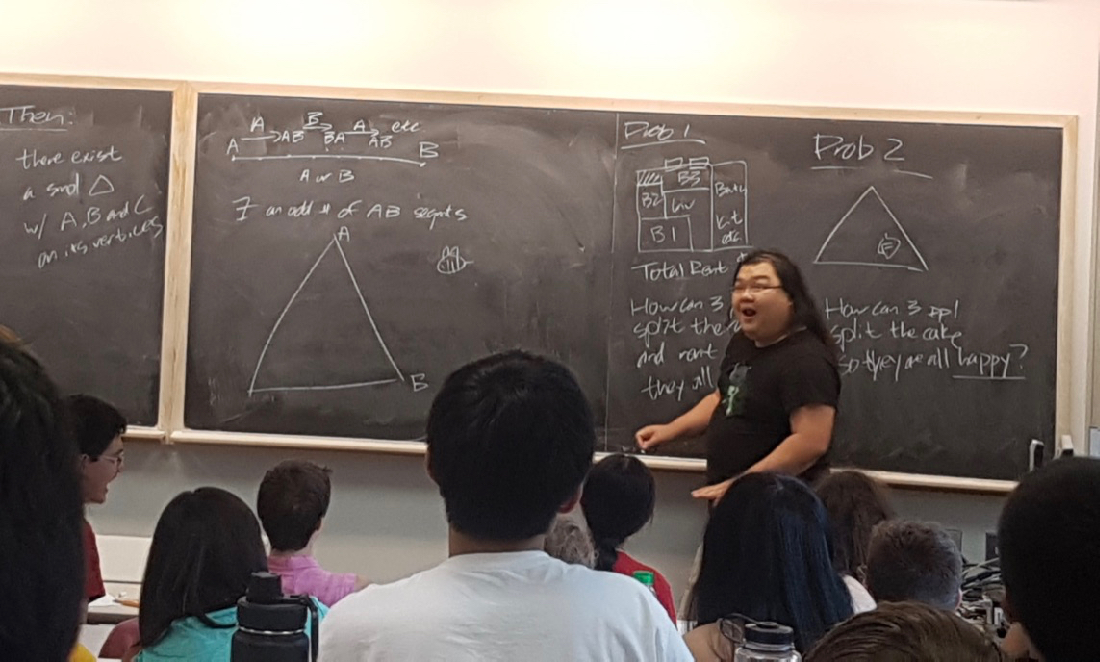 Then:
there exist
a small △
w/ A, B and C
on its vertices
A B A etc
A AB BA AB B
A or B
∃ an odd # of AB segmts
A
B
Prob 1
B3
B2 Liv Bath
B1 Kit
etc.
Total Rent
How can 3
split the
and rent
they all
Prob 2
How can 3 ppl
split the cake
so they are all happy?